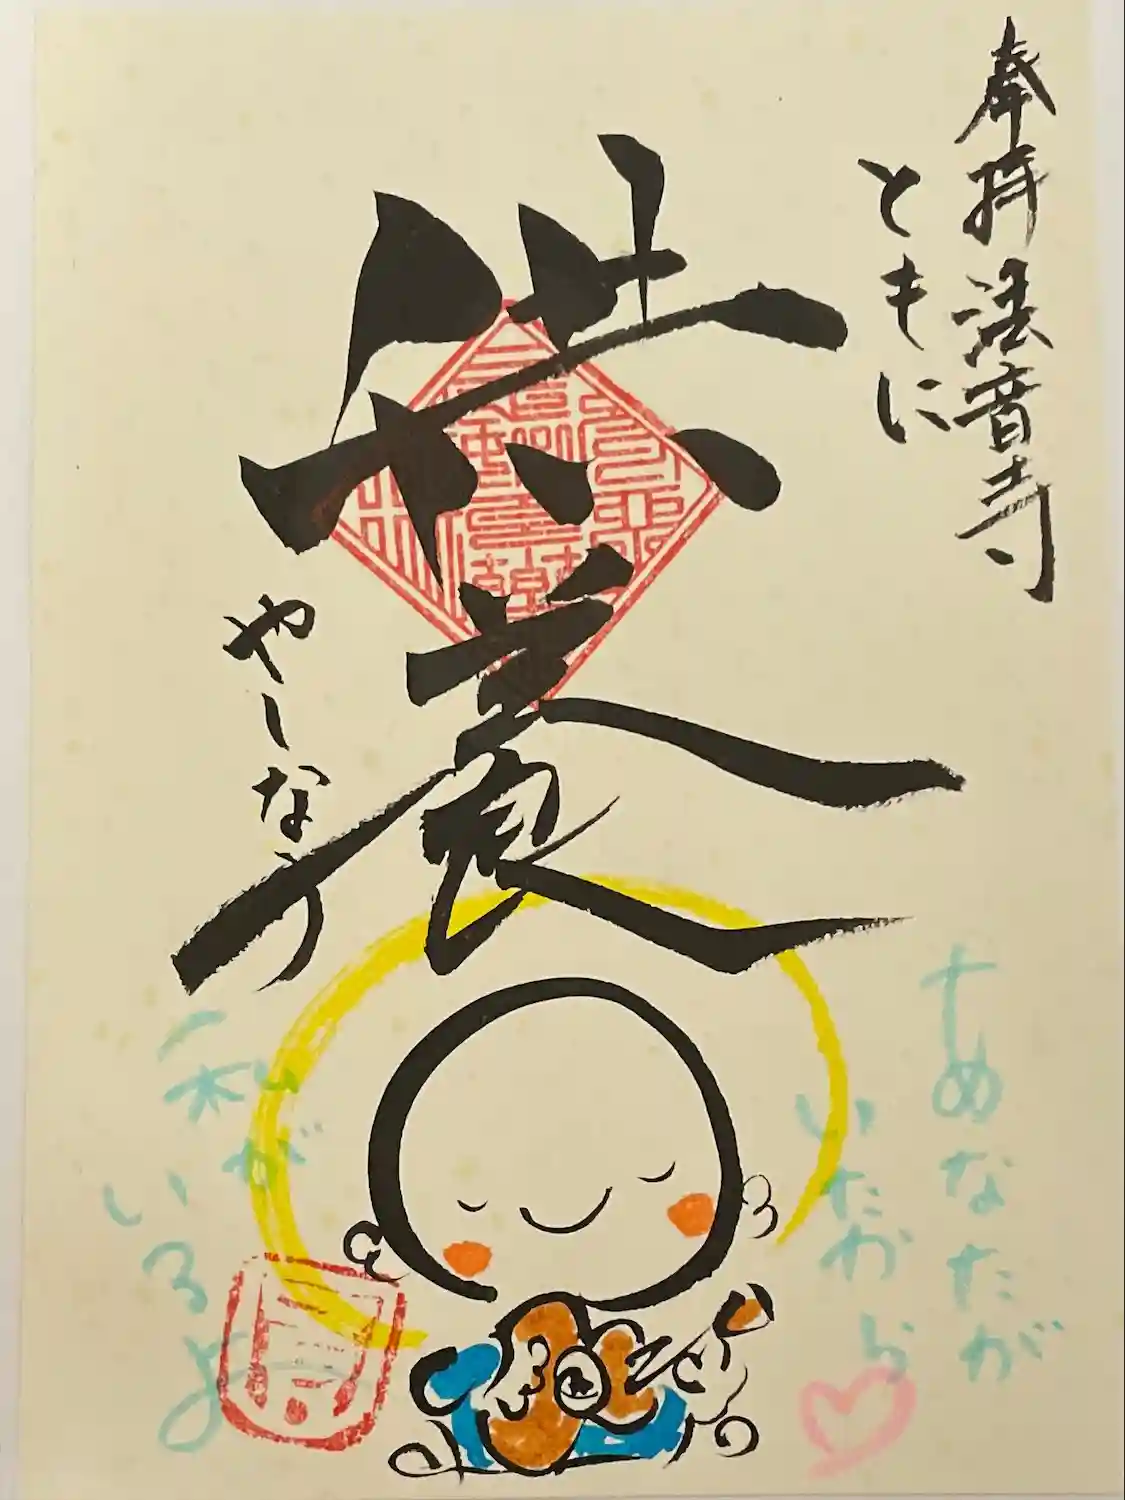 奉拝 法音寺
ともに
供養
やしなう
あなたが
いたから
私が
いるよ